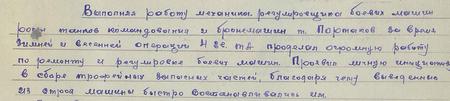 Выполняя работу механика регулировщика боевых машин
роты танков командования и бронемашин т. Портаков за время
Зимней и весенней операции 4 Гв. т.д. проделал огромную работу
по ремонту и регулировке боевых машин. Проявил личную инициативу
в сборе трофейных запасных частей, благодаря чему выведенные
из строя машины быстро восстанавливались им.